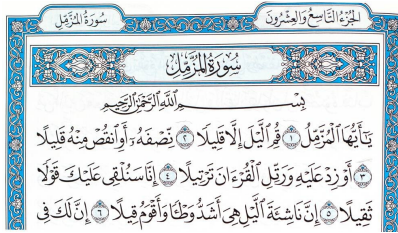 سُورَةُ المُزَّمِّل
الجُزْءُ التَّاسِعُ وَالعِشْرُونَ
سُورَةُ المُزَّمِّل
بِسْمِ اللَّهِ الرَّحْمَٰنِ الرَّحِيمِ
يَٰٓأَيُّهَا ٱلْمُزَّمِّلُ ١ قُمِ ٱلَّيْلَ إِلَّا قَلِيلًا ٢ نِّصْفَهُۥٓ أَوِ ٱنقُصْ مِنْهُ قَلِيلًا
٣ أَوْ زِدْ عَلَيْهِ وَرَتِّلِ ٱلْقُرْءَانَ تَرْتِيلًا ٤ إِنَّا سَنُلْقِى عَلَيْكَ قَوْلًا
ثَقِيلًا ٥ إِنَّ نَاشِئَةَ ٱلَّيْلِ هِىَ أَشَدُّ وَطْـًٔا وَأَقْوَمُ قِيلًا ٦ إِنَّ لَكَ فِى